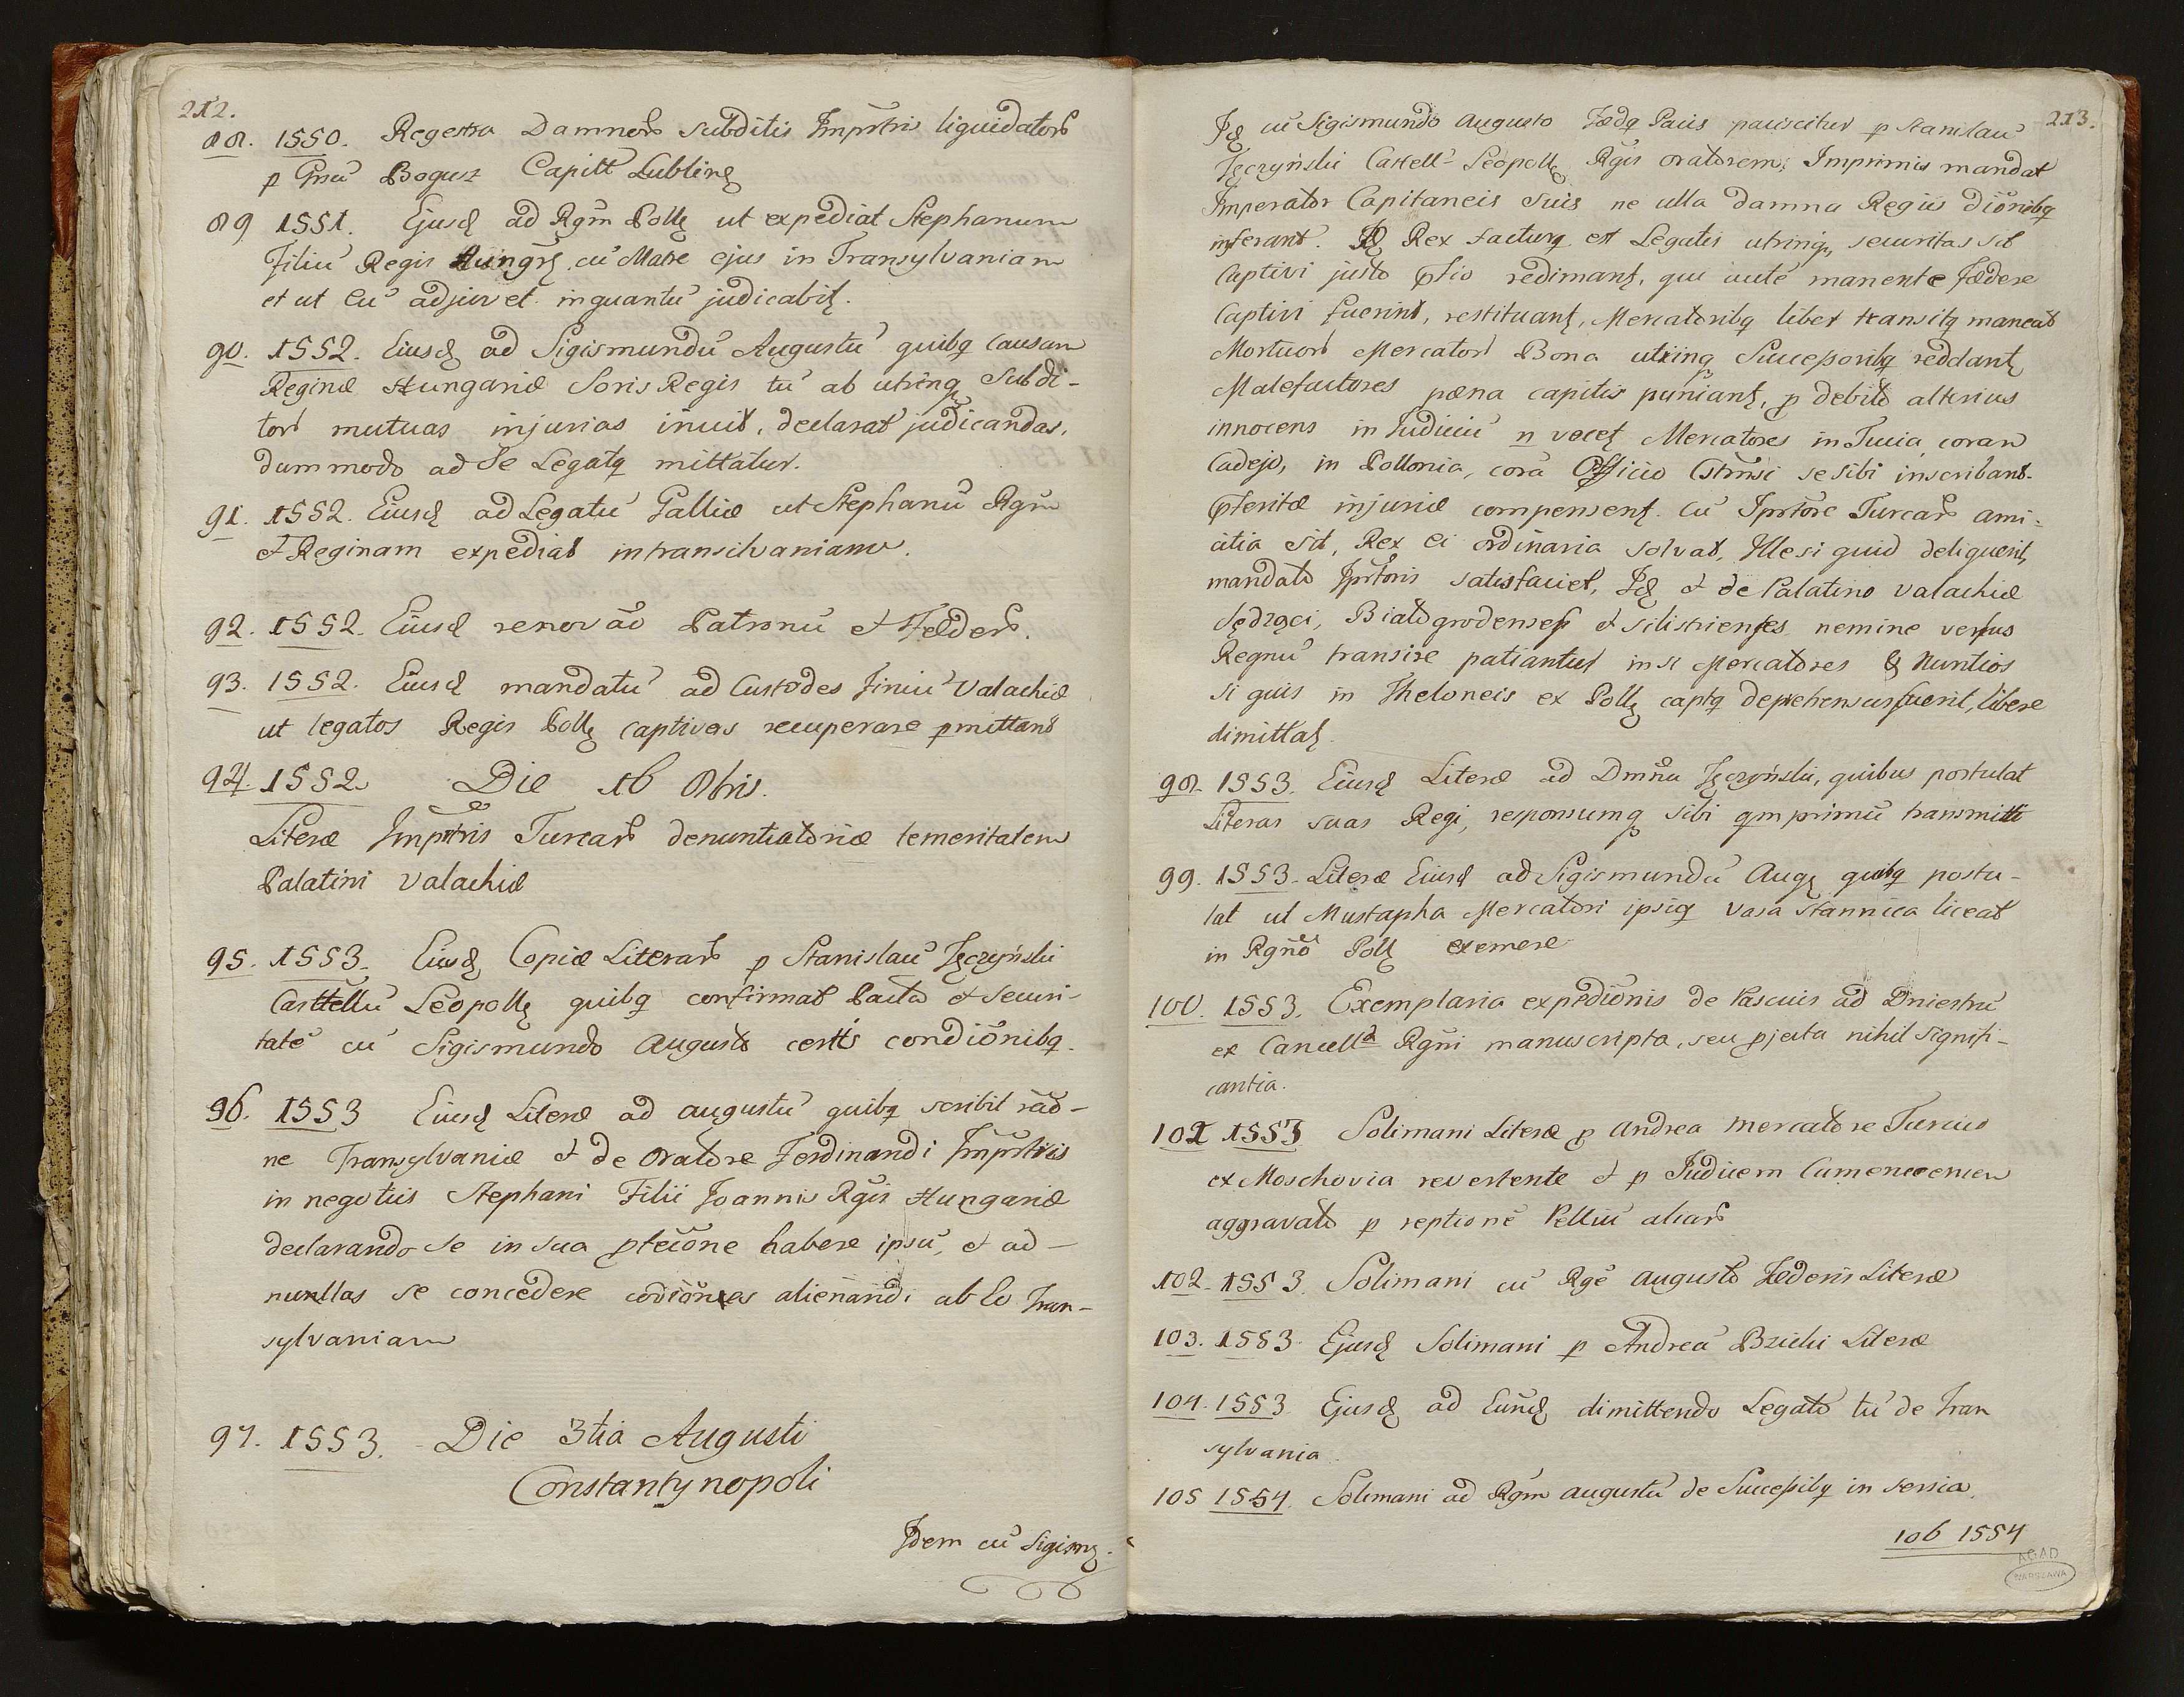 212.
88. 1550. Regestra Damnor subditis Imprtris liquidator
p Gnu Bogusz Capitt Lublinę
89 1551. Ejusd ad Rgm Pollę ut expediat Stephanum
Filiu Regis Hungrę cu Matre ejus in Transylvaniam
et ut Eu adjuvet inquantu judicabit.
90. 1552. Eiusd ad Sigismundu Augustu quibq causam
Reginæ Hungariæ Soris Regis tu ab utrinq Subdi-
tor mutuas injurias inuit, declarat judicandas,
dummodo ad Se Legatq mittatur.
91. 1552. Eiusd ad Legatu Galliæ ut Stephanu Rgm
et Reginam expediat in transilvaniam.
92. 1552. Eiusd renovao Patronu et Fæder.
93. 1552. Eiusd mandatu ad Custodes Finiu Valachiæ
ut legatos Regis Pollę captivos recuperare pmittant
94. 1552. Die 16 8bris.
Literæ Imprtris Turcar denuntiatoriæ temeritatem
Palatini Valachiæ
95. 1553. Eiusd Copiæ Literar p Stanislau Tęczyński
Casttellu Leopollę quibq confirmat Pacta et securi-
tate cu Sigismundo Augusto certis condionibq.
96. 1553 Eiusd Literæ ad augustu quibq scribit rao-
ne Transylvaniæ et de Oratore Ferdinandi Imprtris
in negotiis Stephani Filii Joannis Rgis Hungariæ
declarando se in sua pteione habere ipsu, et ad-
nunllas se concedere codiones alienandi ab Eo Tran-
sylvaniam
97. 1553. Die 3tia Augusti
Constantynopoli
Idem cu Sigismę.
213.
Id cu Sigismundo Augusto Fædq Pacis paciscitur p Stanilau
Tęczyński Castell Leopollę Rgis oratorem; Imprimis mandat
Imperator Capitaneis suis ne ulla damna Regiis dionibq
inferant. Id Rex facturq est Legatis utrinq, securitas sit
Captivi justo ptio redimant, qui aute manente Fædere
Captivi fuerint, restituant, Mercatoribq liber transitq maneat
Mortuor Mercator Bona utrinq Successoribq reddant
Malefactores pæna capitis puniant, p debito alterius
innocens in Judiciu n vocet Mercatores in Tucia coram
Cadejo, in Pollonia, cora Officio Cstrnsi se sibi inscribant.
pteritæ injuriæ compensent. Cu Iprtore Turcar ami-
citia sit, Rex ei ordinaria solvat, Ille si quid deliquerit,
mandato Iprtoris satisfaciet, Id et de Palatino Valachiæ
Sędzęci, Białogrodenses et silistrienses nemine versus
Regnu transire patiantur insi Mercatores & Nuntios
Si quis in Theloneis ex Pollę captq deprehensus fuerit, libere
dimittat.
98. 1553. Eiusd Literæ ad Dmnu Tęczyński, quibus postulat
Literas suas Regi, responsumq sibi qmprimu transmitti
99. 1553. Literæ Eiusd ad Sigismundu Augę quibq postu-
lat ut Mustapha Mercatori ipsiq vasa stannica liceat
in Rgno Pollę exemere
100. 1553. Exemplaria expedionis de Pascuis ad Dniestru
ex Cancella Rgni manuscripta, seu pjecta nihil signifi-
cantia.
101 1553 Solimani Literæ p Andrea mercatore Turcico
ex Moschovia revertente et p Judicem Camenecensem
aggravato p reptione Pelliu aliar
102. 1553. Solimani cu Rge Augusto Fæderis Literæ
103. 1553. Ejusd Solimani p Andrea Bzicki Literæ
104. 1553. Ejusd ad Eund dimittendo Legato tu de Tran
sylvania
105 1554. Solimani ad Rgm Augustu de Successibq in Persia.
106 1554
AGAD
WARSZAWA